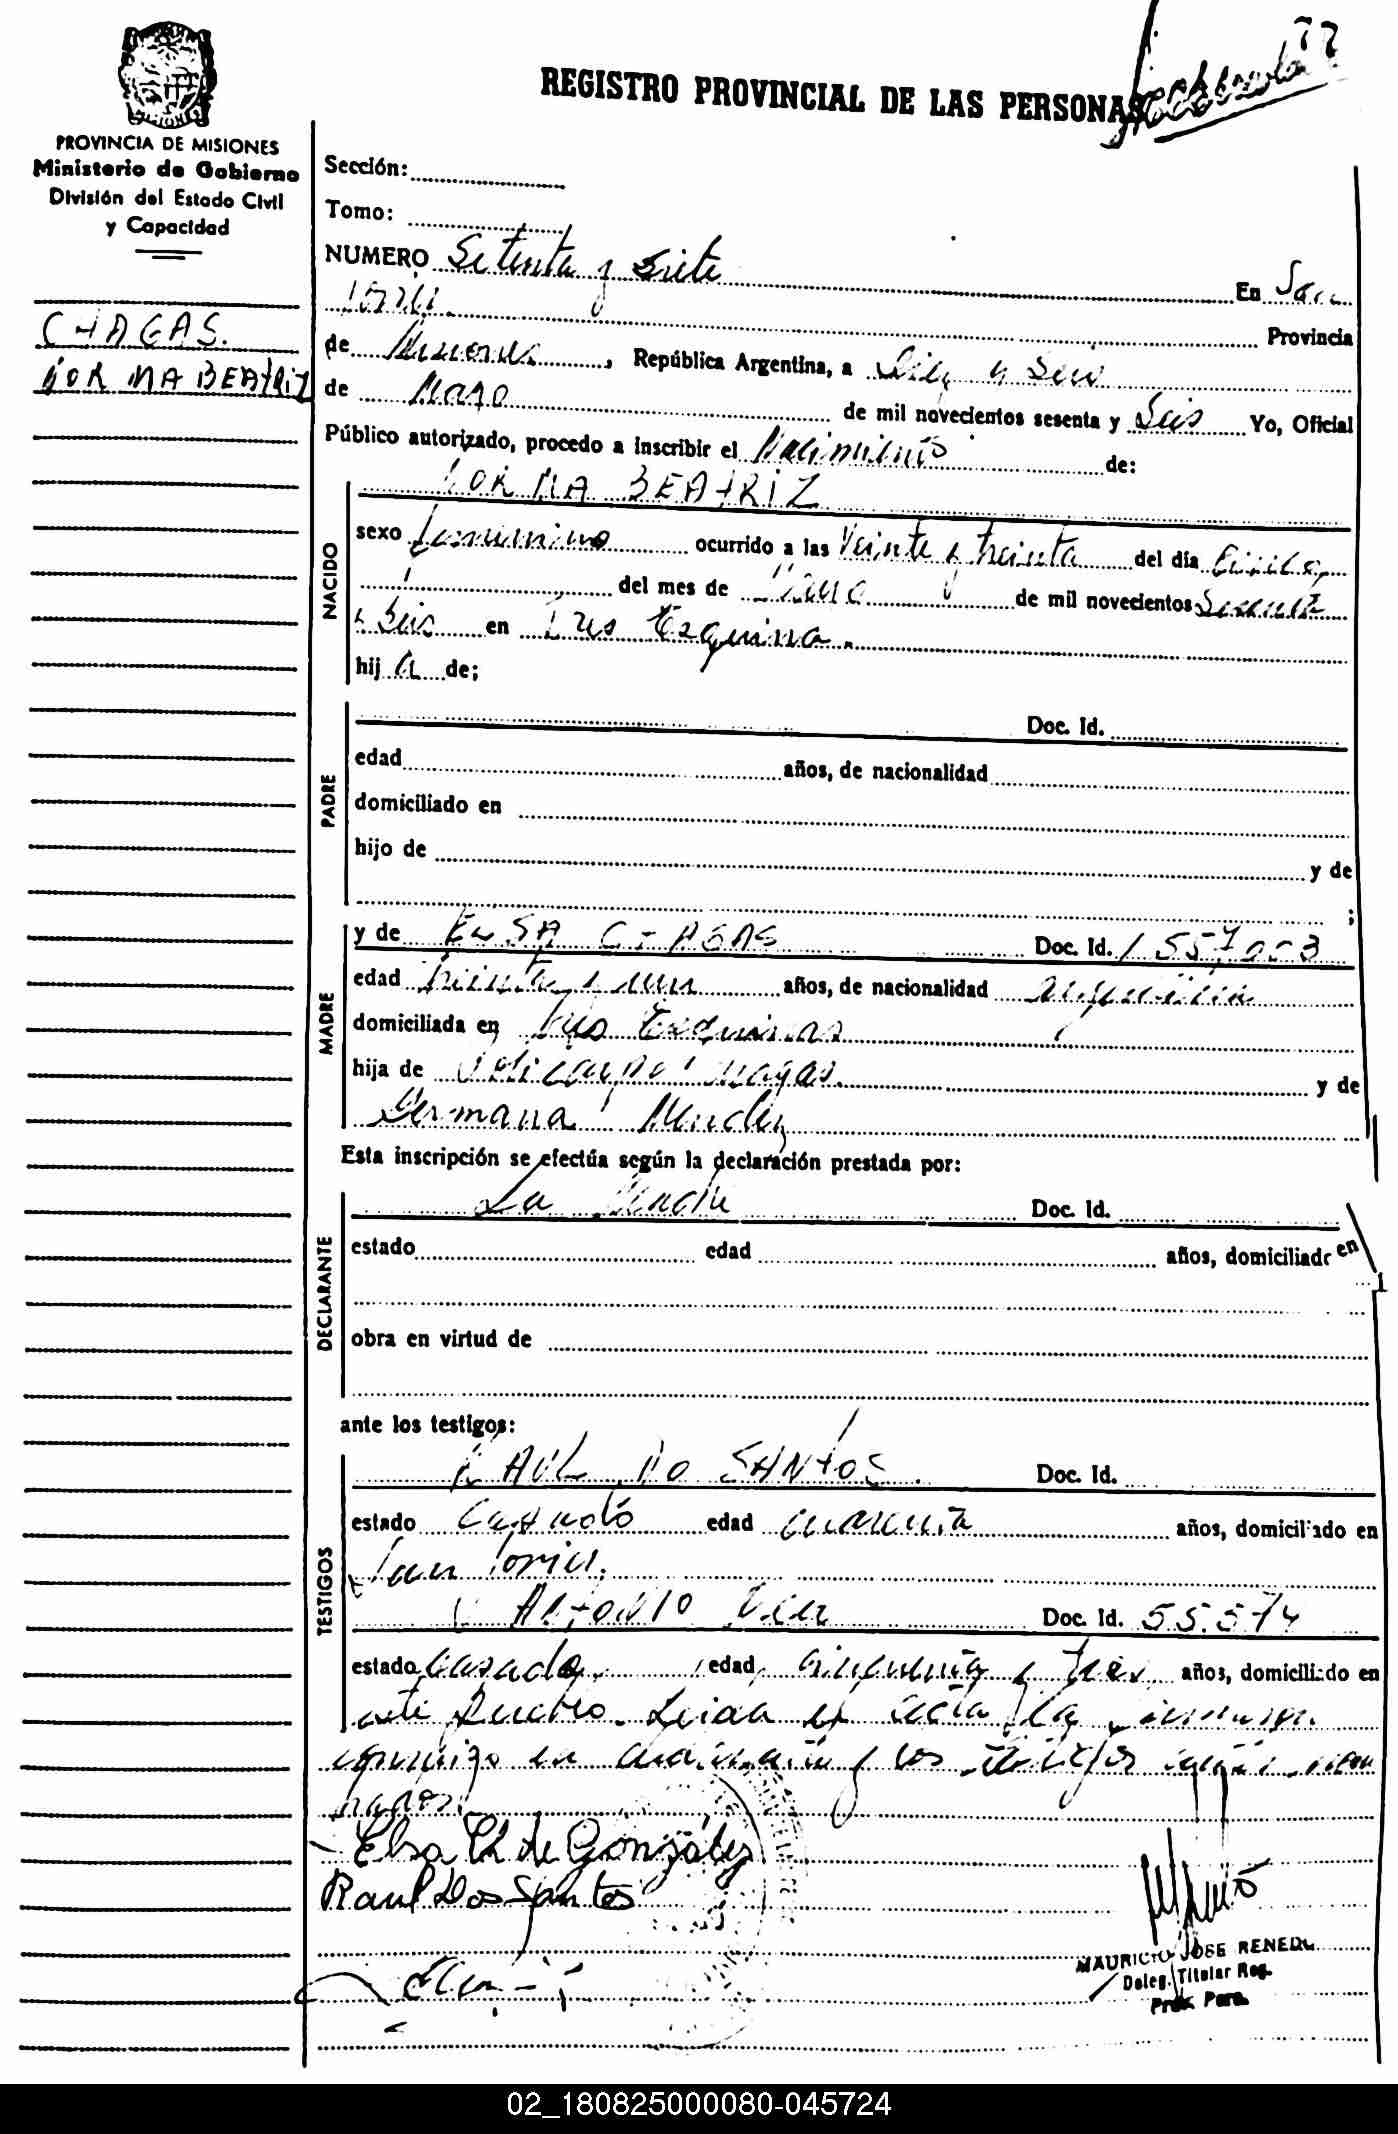 77
REGISTRO PROVINCIAL DE LAS PERSONAS
PROVINCIA DE MISIONES
Ministerio de Gobierno
División del Estado Civil
y Capacidad
CHAGAS.
NORMA BEATRIZ
Sección:
Tomo:
NUMERO Setenta y Siete
En San
Javier.
Provincia
de Misiones, República Argentina, a Diez y Seis
de Mayo de mil novecientos sesenta y Seis Yo, Oficial
Público autorizado, procedo a inscribir el Nacimiento de:
NORMA BEATRIZ
NACIDO
sexo femenino ocurrido a las Veinte y treinta del día
del mes de de mil novecientos Sesenta
y Seis en Tres Esquina.
hij a de;
PADRE
Doc. Id.
edad años, de nacionalidad
domiciliado en
hijo de y de
;
MADRE
y de ELSA CHAGAS Doc. Id.
edad treinta y un años, de nacionalidad argentina
domiciliada en Tres Esquinas
hija de Policarpo Chagas. y de
Germana Mendez
Esta inscripción se efectúa según la declaración prestada por:
DECLARANTE
La Madre Doc. Id.
estado edad años, domiciliado en
obra en virtud de
ante los testigos:
TESTIGOS
RAUL DO SANTOS. Doc. Id.
estado Casado edad cuarenta años, domiciliado en
San Javier.
ANTONIO Doc. Id. 55.574
estado casado, edad cincuenta y tres años, domiciliado en
este Pueblo. Leida el acta la
conmigo la y los testigos
Elsa Ch de González
Raul Dos Santos
MAURICIO JOSE RENEDO
Deleg. Titular Reg.
Prov. Pers.
02_180825000080-045724